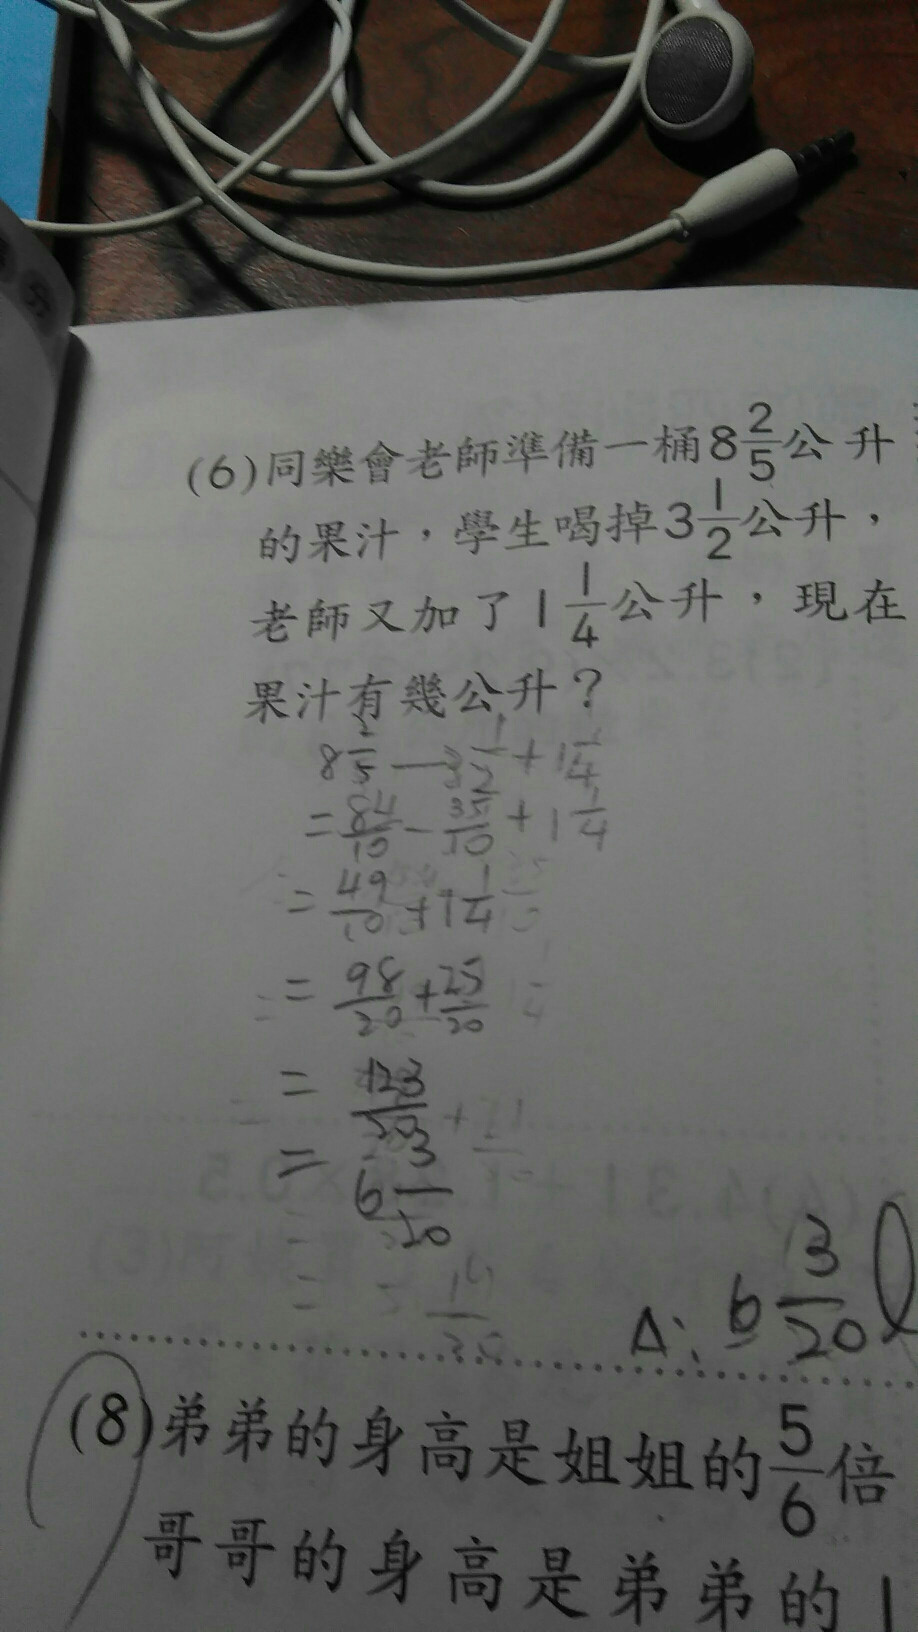 分
(6)同樂會老師準備一桶8 2/5公升
的果汁，學生喝掉3 1/2公升，
老師又加了1 1/4公升，現在
果汁有幾公升？
8 2/5 — 3 1/2 + 1 1/4
= 84/10 - 35/10 + 1 1/4
= 49/10 + 1 1/4
= 98/20 + 25/20
= 123/20
= 6 3/20
A: 6 3/20 l
(8)弟弟的身高是姐姐的5/6倍
哥哥的身高是弟弟的1